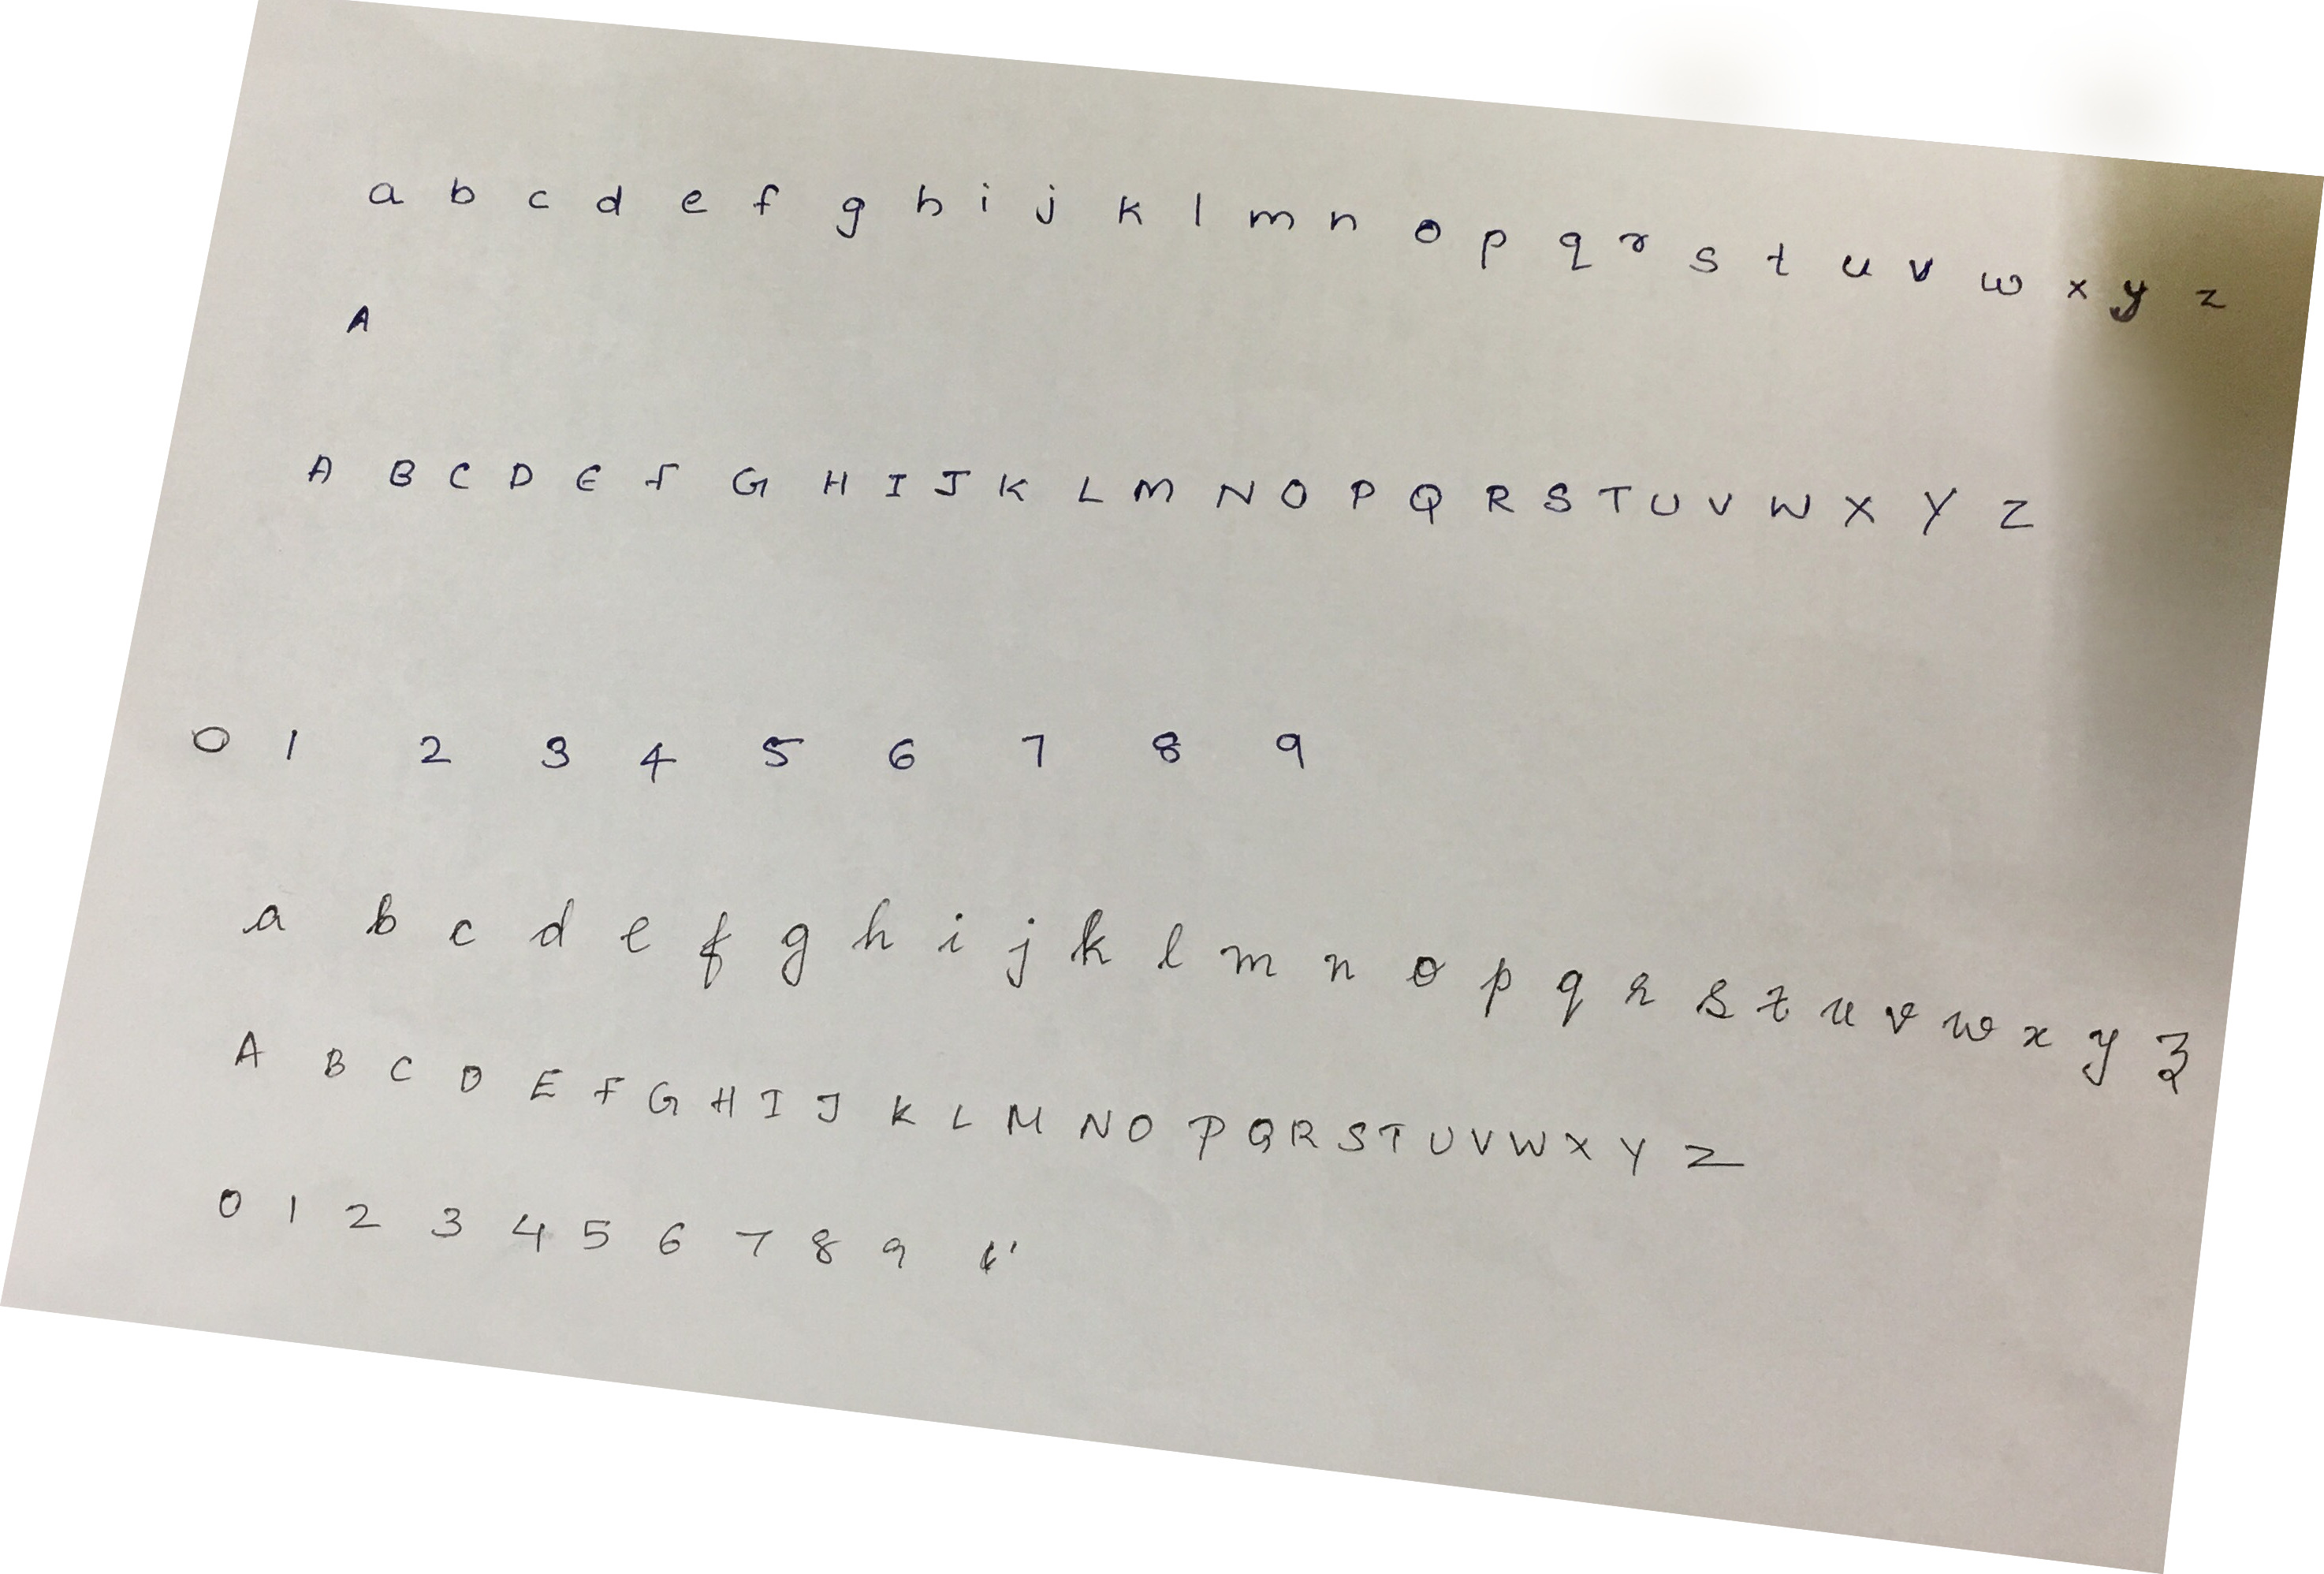 a b c d e f g h i j k l m n o p q r s t u v w x y z
A
A B C D E F G H I J K L M N O P Q R S T U V W X Y Z
0 1 2 3 4 5 6 7 8 9
a b c d e f g h i j k l m n o p q r s t u v w x y z
A B C D E F G H I J K L M N O P Q R S T U V W X Y Z
0 1 2 3 4 5 6 7 8 9